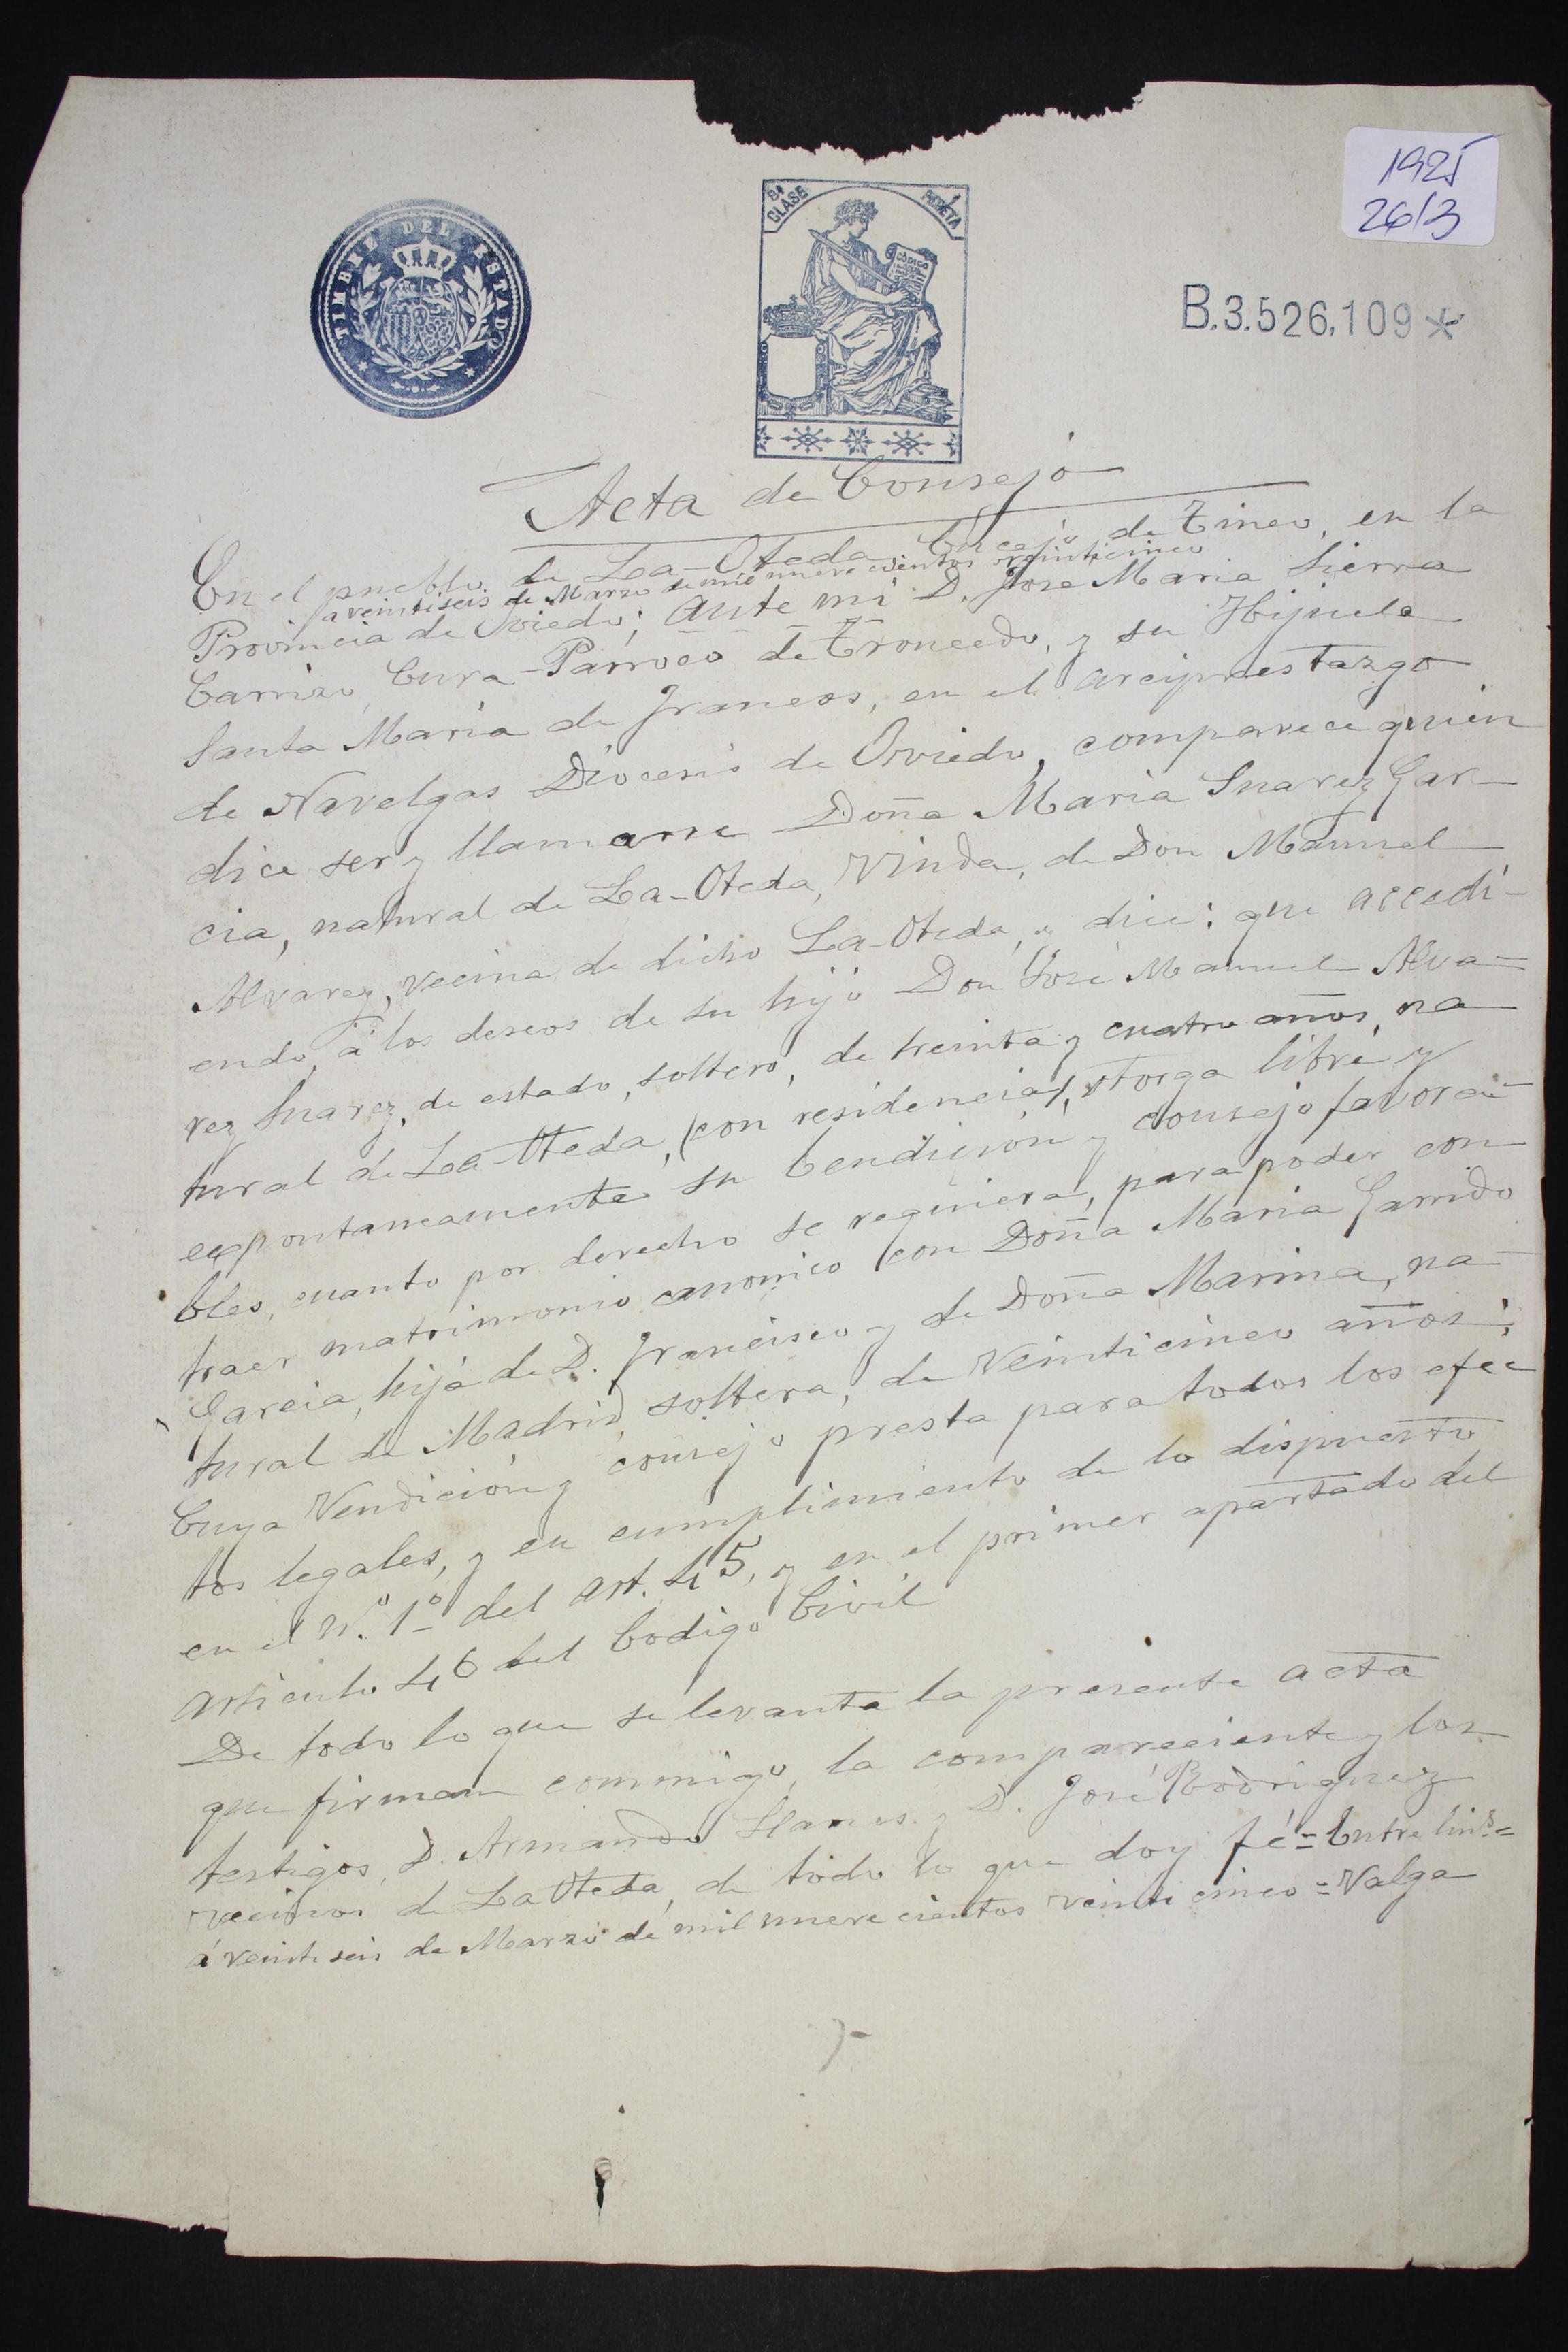 1925
26/3
TIMBRE DEL ESTADO
8ª CLASE
1 PESETA
CÓDIGO
B.3.526,109
Acta de Consejo
En el pueblo, de La-Oteda, Concejo de Tineo, en la
a veintiseis de Marzo de mil nuevecientos veinticinco
Provincia de Oviedo; ante mi D. Jose Maria Sierra
Carrizo, Cura-Parroco de Troncedo, y su Hijuela
Santa Maria de Francos, en el arciprestazgo
de Navelgas Diocesis de Oviedo, comparece quien
dice ser y llamarse Doña Maria Suarez Gar-
cia, natural de La-Oteda, Viuda, de Don Manuel
Alvarez, vecina de dicho La-Oteda, y dice: que accedi-
endo, á los deseos de su hijo Don José Manuel Alva=
rez Suarez, de estado, soltero, de treinta y cuatro años, na
tural de La-Oteda, (con residencia), otorga libre y
expontaneamente su bendición y consejo favora-
bles, cuanto por derecho se requiera, para poder con
traer matrimonio canonico con Doña Maria Garrido
Garcia, hija de D. Francisco y de Doña Marina, na-
tural de Madrid, soltera, de veinticinco años;
Cuya Vendición y consejo presta para todos los efec
tos legales, y en cumplimiento de lo dispuesto
en el n.º 1º del art. 45, y en el primer apartado del
articulo 46 del Codigo Civil
De todo lo que se levanta la presente acta
que firman conmigo, la compareciente y los
testigos, D. Armando Llanes y D. José Rodriguez
vecinos de La Oteda, de todo lo que doy fé = Entre lins =
á veintiseis de Marzo de mil nuevecientos veinticinco = Valga